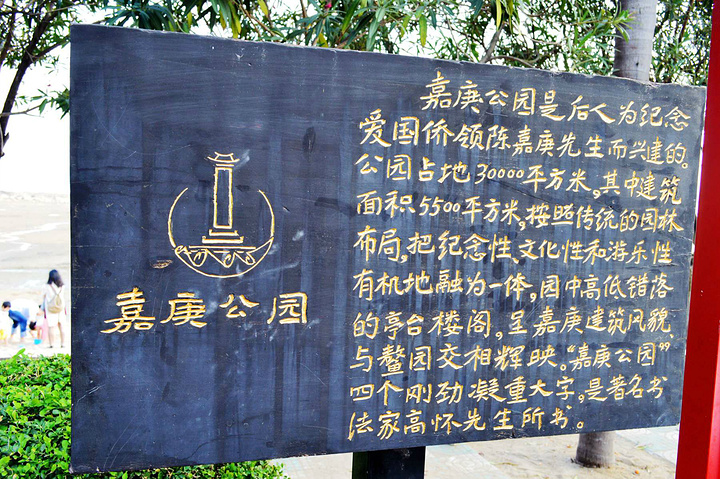 嘉庚公园
嘉庚公园是后人为纪念
爱国侨领陈嘉庚先生而兴建的。
公园占地30000平方米,其中建筑
面积5500平方米,按照传统的园林
布局,把纪念性、文化性和游乐性
有机地融为一体,园中高低错落
的亭台楼阁,呈嘉庚建筑风貌,
与鳌园交相辉映。“嘉庚公园”
四个刚劲凝重大字,是著名书
法家高怀先生所书。